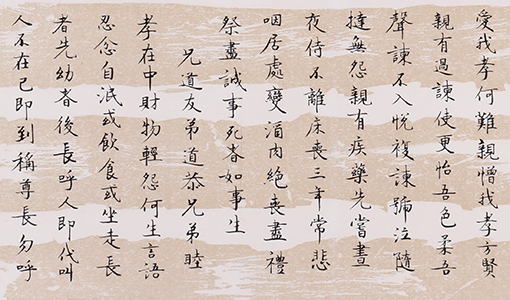 愛我孝何難親憎我孝方賢
親有過諫使更怡吾色柔吾
聲諫不入悅複諫號泣隨
撻無怨親有疾藥先嘗晝
夜侍不離床喪三年常悲
咽居處變酒肉絕喪盡禮
祭盡誠事死者如事生
兄道友弟道恭兄弟睦
孝在中財物輕怨何生言語
忍忿自泯或飲食或坐走長
者先幼者後長呼人即代叫
人不在己即到稱尊長勿呼